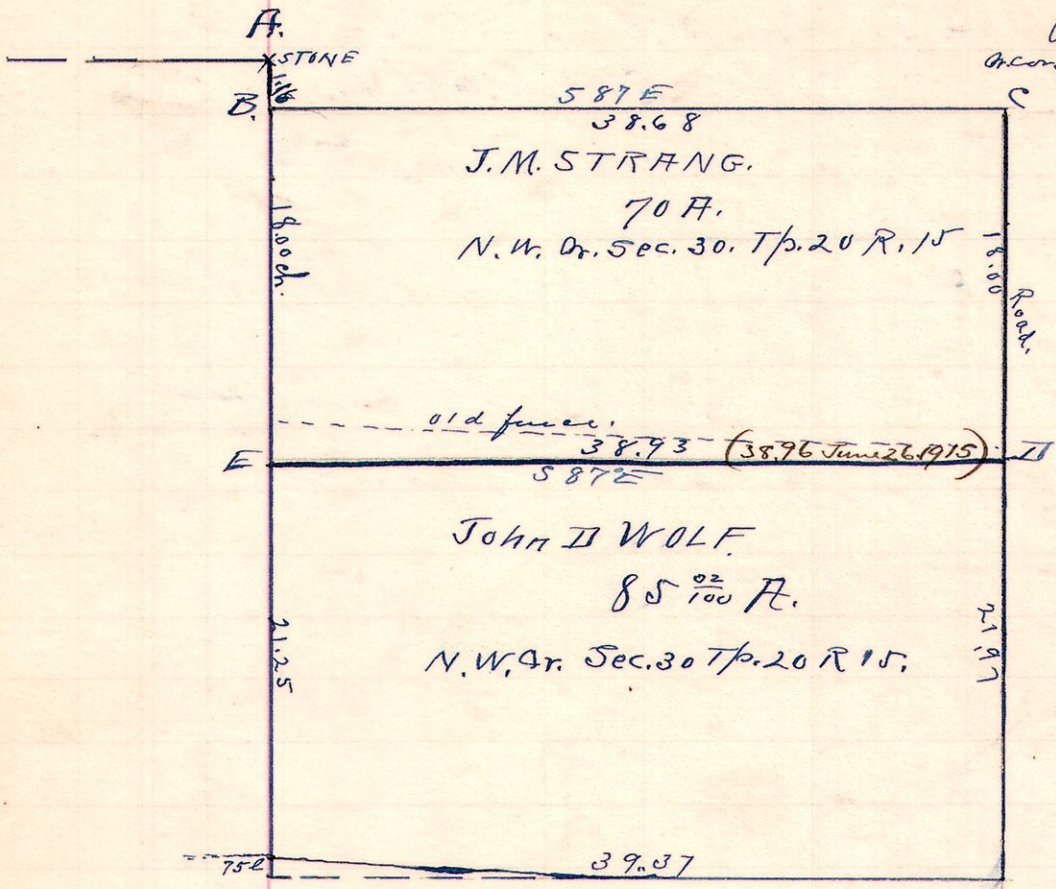 A.
STONE
1.16
B.
S 87 E
C
38.68
J.M. STRANG.
70 A.
N.W. Qr. Sec. 30. Tp. 20 R. 15
18.00 ch.
18.00
Road.
old fence.
E
38.93 (38.96 June 26. 1915)
D
S 87° E
John D WOLF.
85 02/100 A.
N.W. Qr. Sec. 30 Tp. 20 R 15.
21.25
21.97
75 l
39.37